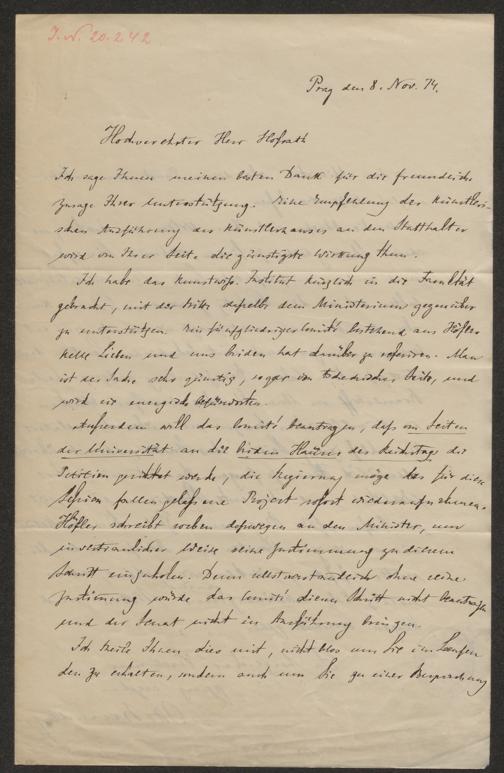 J.N. 20.242
Prag den 8. Nov. 74.
Hochverehrter Herr Hofrath
Ich sage Ihnen meinen besten Dank für die freundliche
Zusage Ihrer Unterstützung. Eine Empfehlung der künstleri-
schen Ausführung des Künstlerhauses an den Statthalter
wird von Ihrer Seite die günstigste Wirkung thun.
Ich habe das kunstwiss. Institut kürzlich in die Facultät
gebracht, mit der Bitte dasselbe dem Ministerium gegenüber
zu unterstützen. Ein fünfgliedriges Comité bestehend aus Höfler
Kelle Lieben und uns beiden hat darüber zu referiren. Man
ist der Sache sehr günstig, sogar von Seite, und
wird sie energisch befürworten.
Außerdem will das Comité beantragen, daß von Seiten
der Universität an die beiden Häuser des Reichstags die
Petition gerichtet werde, die Regierung möge das für diese
Session fallen gelassene Project sofort wiederaufnehmen.
Höfler schreibt soeben deßwegen an den Minister, um
in vertraulicher Weise seine Zustimmung zu diesem
Schritt einzuholen. Denn selbstverständlich ohne seine
Zustimmung würde das Comité diesen Schritt nicht beantragen
und der Senat nicht in Ausführung bringen.
Ich theile Ihnen dies mit, nicht blos um Sie im Laufen
den zu erhalten, sondern auch um Sie zu einer Besprechung